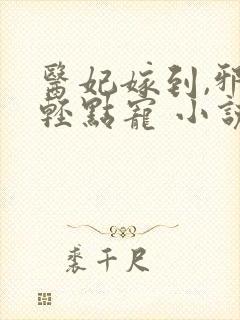 醫妃嫁到,邪
輕點寵 小說
裘千尺